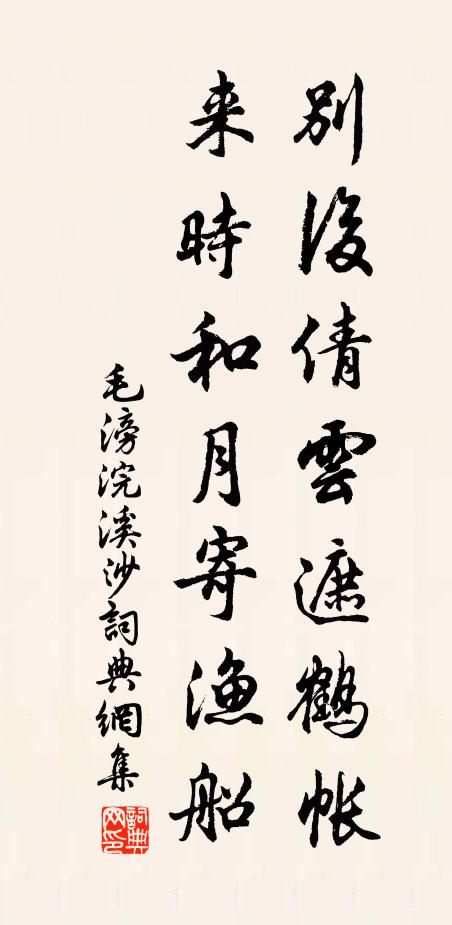 別後倩雲遮鶴帳
来時和月寄漁船
毛滂浣溪沙詞典網集
詞典网印